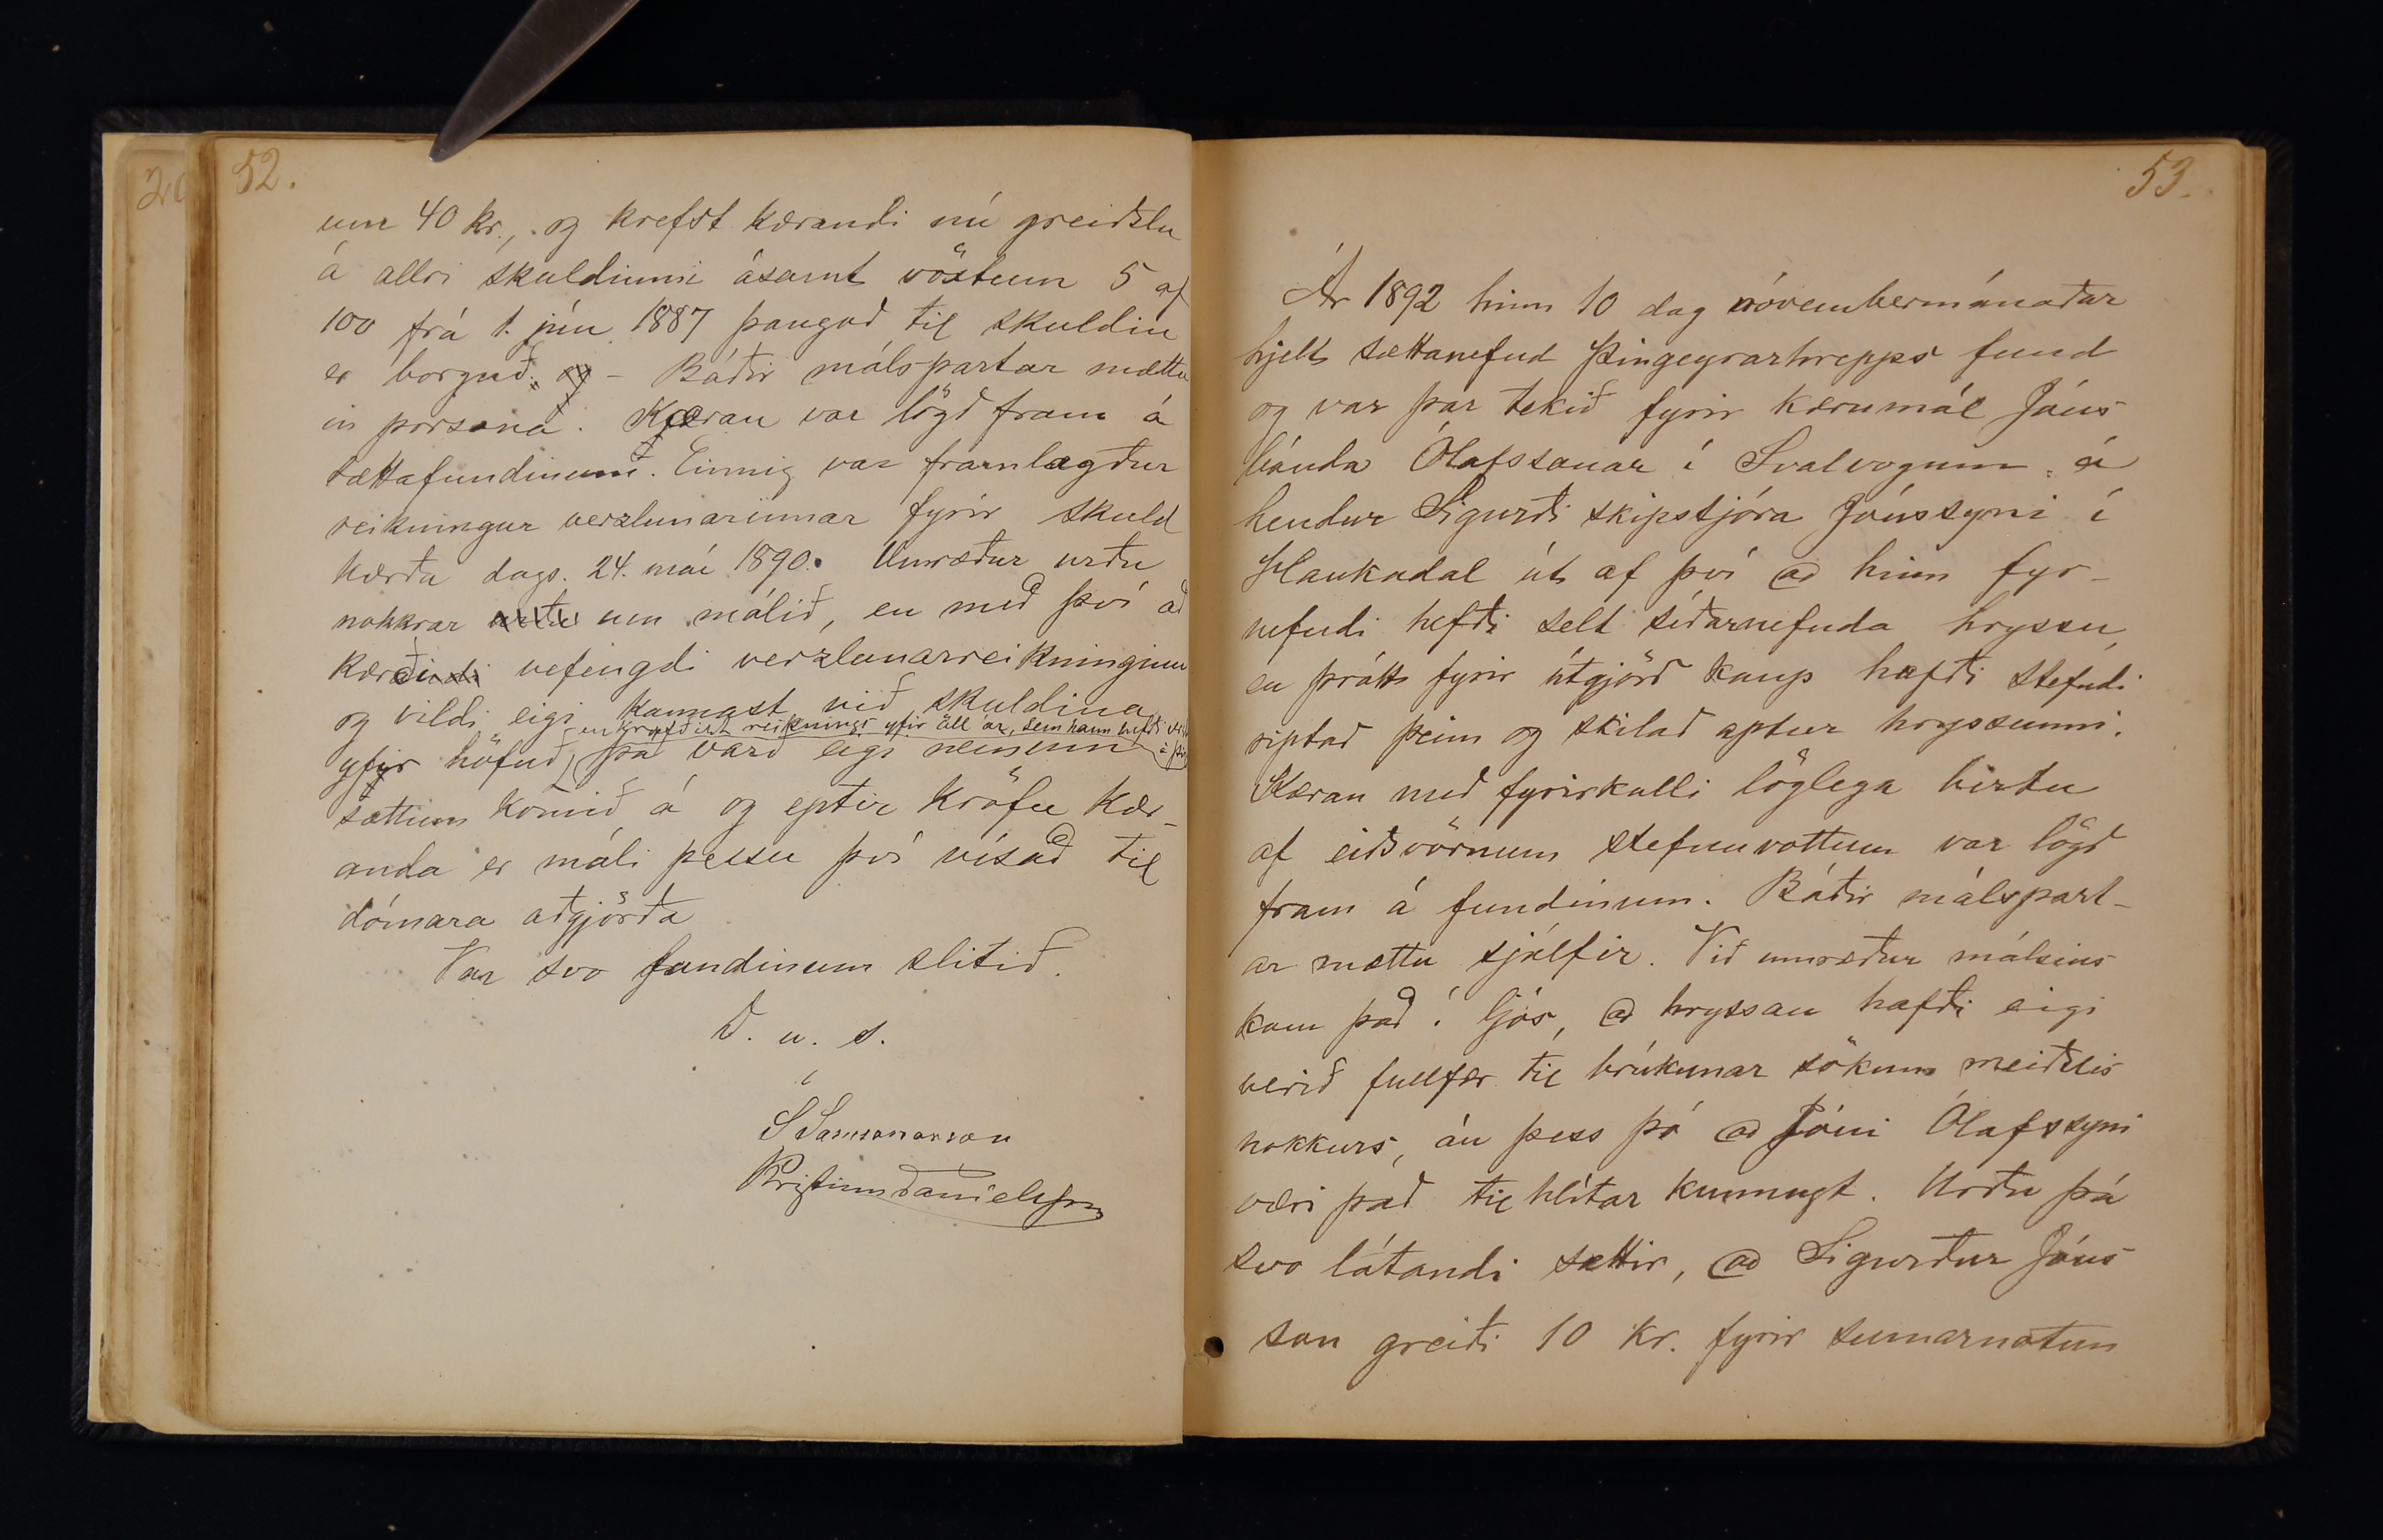 52.
um 40 kr., og krefst kærandi nú greiðslu
á allri skuldinni ásamt vöxtum 5 af
100 frá 1. jún. 1887 þangað til skuldin
er borguð. og - Báðir málspartar mættu
in persona. Kæran var lögð fram á
sættafundinum. Einnig var framlagður
reikningur verzlunarinnar fyrir skuld
kærða dags. 24. maí 1890. Umræður urðu
nokkrar urðu um málið, en með því að
kærði vefengdi verzlunarreikninginn
og vildi eigi kannast við skuldina
en krafðist reiknings yfir öll ár, sem hann hefði
yfir höfuð, þá varð eigi neinum
sættum komið á og eptir kröfu kær-
anda er máli þessu því vísað til
dómara aðgjörða
Var svo fundinum slitið.
D. u. s.
S Samsonarson
Kristinn Daníelsson
53.
Ár 1892 hinn 10 dag nóvembermánaðar
hjelt sættanefnd Þingeyrarhrepps fund
og var þar tekið fyrir kærumál Jóns
bónda Ólafssonar í Svalvogum á
hendur Sigurði skipstjóra Jónssyni í
Haukadal út af því að hinn fyr-
nefndi hefði selt síðarnefnda hryssu,
en þrátt fyrir útgjörð kaup hafði stefndi
riptað þeim og skilað aptur hryssunni.
Kæran með fyrirkalli löglega birtu
af eiðsvörnum stefnuvottum var lögð
fram á fundinum. Báðir málspart-
ar mættu sjálfir. Við umræður málsins
kom það í ljós, að hryssan hafði eigi
verið fullfær til brúkunar sökum meiðslis
nokkurs, án þess þó að Jóni Ólafssyni
væri það til hlítar kunnugt. Urðu þá
svo látandi sættir, að Sigurður Jóns
son greiði 10 kr. fyrir sumarnotum